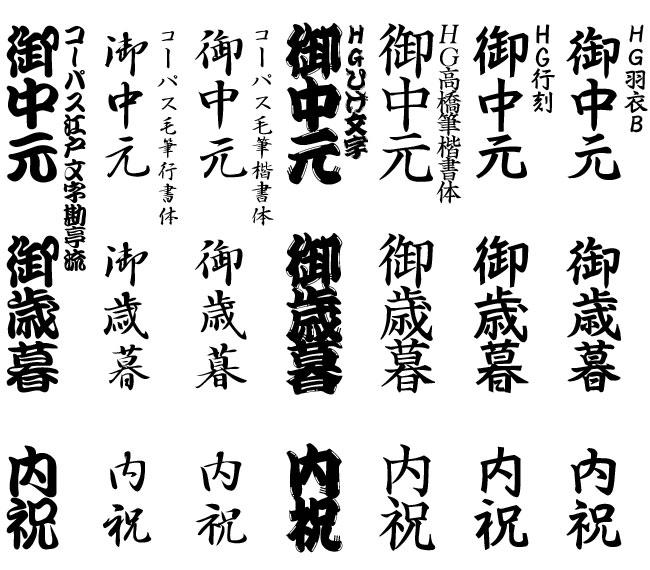 HG羽衣B
御中元
御歳暮
内祝
HG行刻
御中元
御歳暮
内祝
HG高橋筆楷書体
御中元
御歳暮
内祝
HGひげ文字
御中元
御歳暮
内祝
コーパス毛筆楷書体
御中元
御歳暮
内祝
コーパス毛筆行書体
御中元
御歳暮
内祝
コーパス江戸文字勘亭流
御中元
御歳暮
内祝